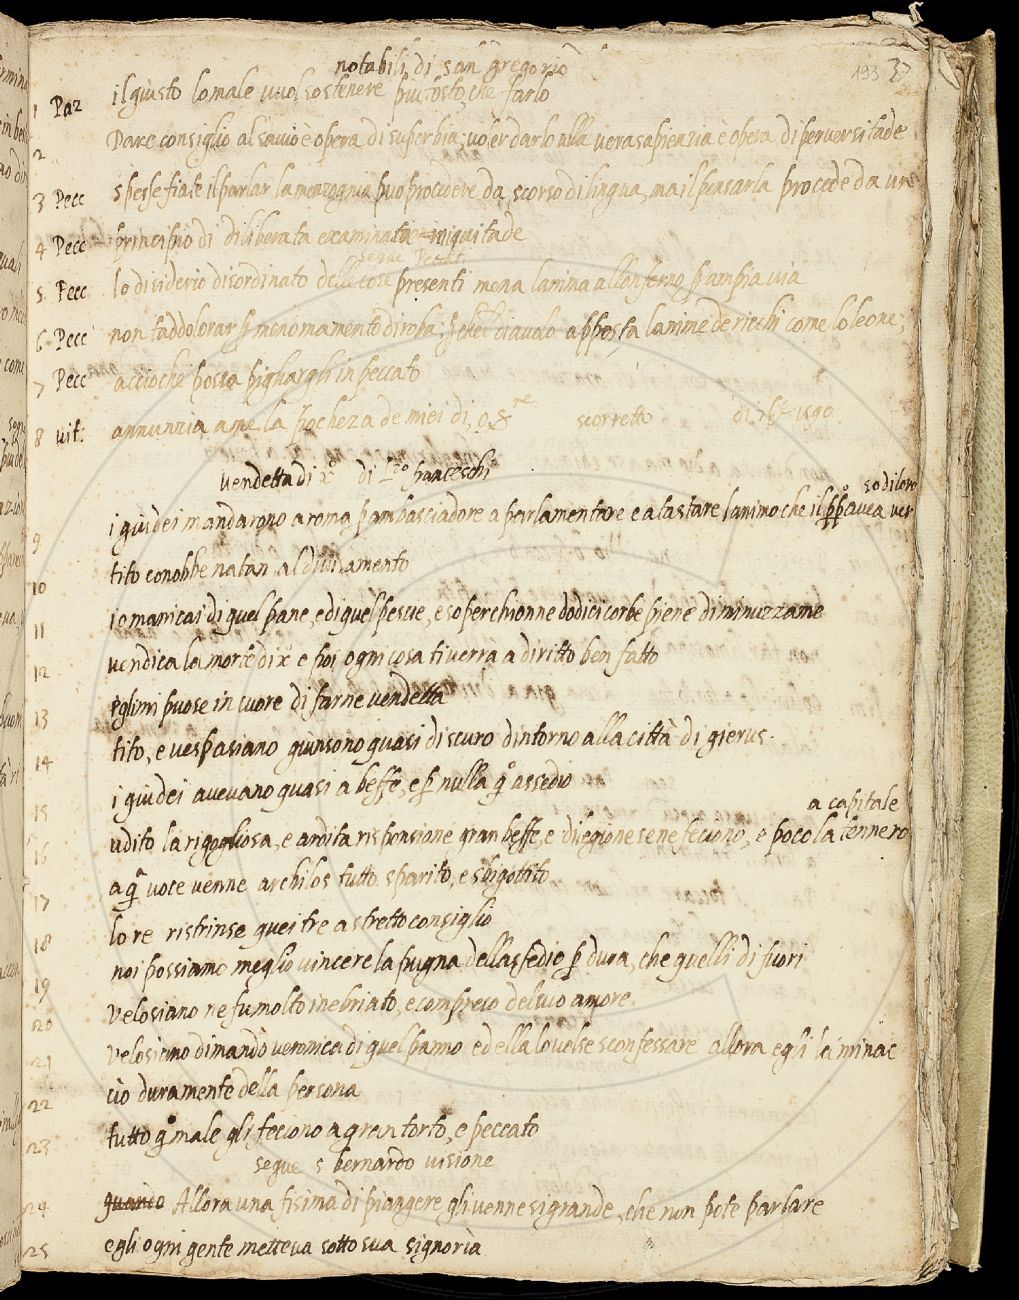 notabili di san gregorio
193 37
1 Paz il giusto lo male vuol sostenere piu tosto, che farlo
2 Dare consiglio al savio è opera di superbia; voler darlo alla vera sapienzia è opera di perversitade
3 Pecc spesse fiate il parlar la menzogna puo procedere da scorso di lingua, ma il pensarla procede da un
4 Pecc principio di diliberata examinata iniquitade
segue Peccat
5 Pecc lo disiderio disordinato delle cose presenti mena lanima allonferno p ampia via
6 Pecc non taddolorar p menomamento di roba; p che il diavolo apposta lanime de ricchi come lo leone;
7 Pecc accioche possa pigliargli in peccato
8 vit: annunzia a me la pocheza de miei di, o &re scorretto di
vendetta di xo di Lzo franceschi
so di loro
9 i giudei mandarono a roma p ambasciadore a parlamentare e a tastare lanimo che il ppo avea ver
10 tito conobbe natan al divisamento
11 io manicai di quel pane, e di quel pescie, e soperchionne dodici corbe piene di minuzzame
12 vendica la morte di xo e poi ogni cosa ti verra a diritto ben fatto
13 eglimi puose in cuore di farne vendetta
14 tito, e vespasiano giunsono quasi di scuro dintorno alla città di gierus.
15 i giudei avevano quasi a beffe, e p nulla qo assedio
a capitale
16 udito la rigogliosa, e ardita risponsione gran beffe, e dilegione sene feciono, e poco la tennero
17 a qa voce venne archilos tutto sparito, e sbigottito
18 lo re ristrinse quei tre a stretto consiglio
19 noi possiamo meglio vincere la pugna della ssedio p dura, che quelli di fuori
20 velosiano ne fu molto inebriato, e compreso del suo amore
21 velosiano dimandò veronica di quel panno ed ella lo volse sconfessare allora egli la minac
22 ciò duramente della persona
23 tutto qo male gli feciono a gran torto, e peccato
segue s bernardo visione
24 quando Allora una fisima di piangere gli venne si grande, che non pote parlare
25 egli ogni gente metteva sotto sua signoria